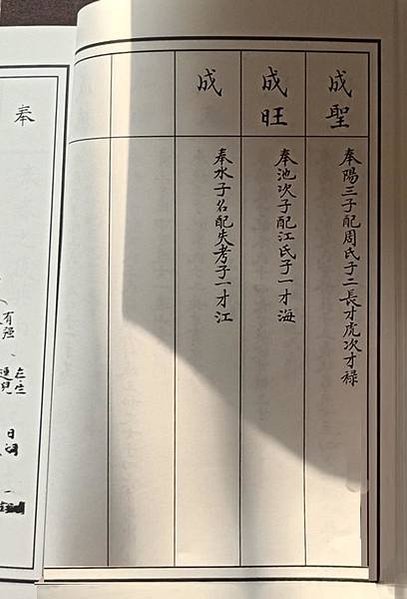 成聖
奉陽三子配周氏子二長才虎次才祿
成旺
奉池次子配江氏子一才海
成
奉水子名配失考子一才江
奉
有强
在生
日